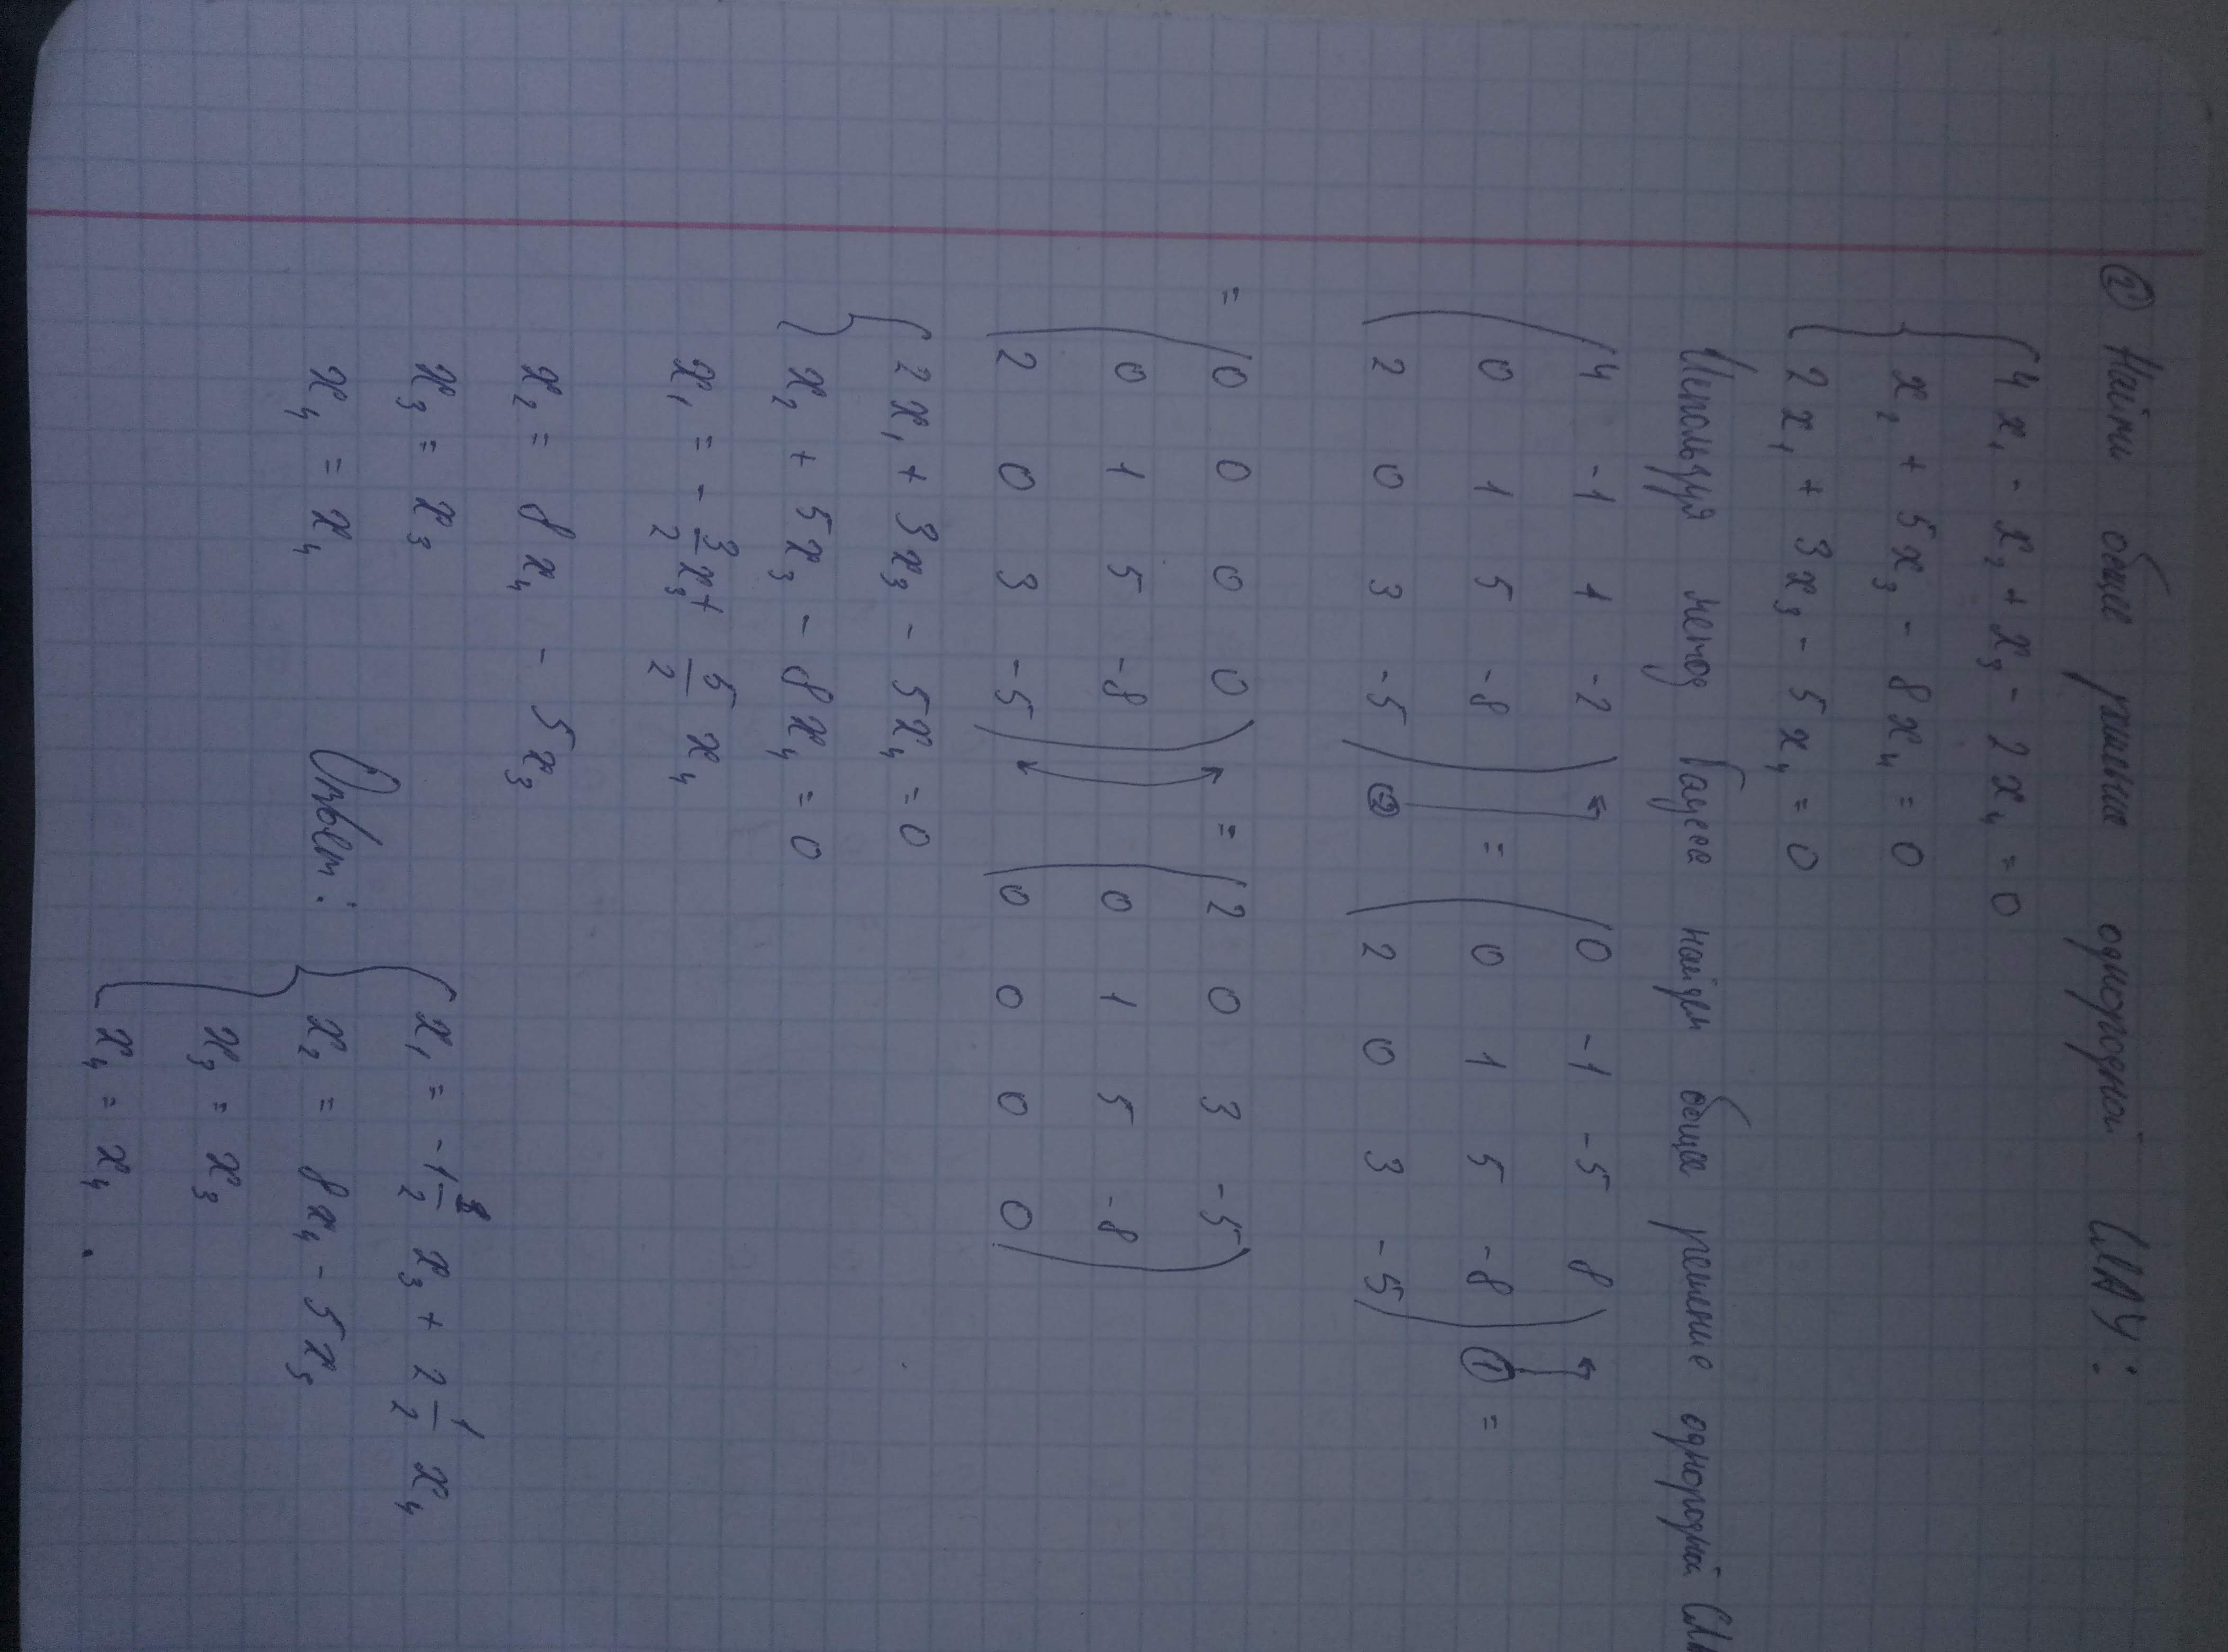 ② Найти общее решение однородной СЛАУ:
4x₁ - x₂ + x₃ - 2x₄ = 0
x₂ + 5x₃ - 8x₄ = 0
2x₁ + 3x₃ - 5x₄ = 0
Используя метод Гаусса найдем общее решение однородной СЛА
4 -1 1 -2 = 0 -1 -5 8
0 1 5 -8 0 1 5 -8 ① =
2 0 3 -5 (-2) 2 0 3 -5
= 0 0 0 0 = 2 0 3 -5
0 1 5 -8 0 1 5 -8
2 0 3 -5 0 0 0 0
2x₁ + 3x₃ - 5x₄ = 0
x₂ + 5x₃ - 8x₄ = 0
x₁ = - 3/2 x₃ + 5/2 x₄
x₂ = 8x₄ - 5x₃
x₃ = x₃
x₄ = x₄
Ответ:
x₁ = -1 1/2 x₃ + 2 1/2 x₄
x₂ = 8x₄ - 5x₃
x₃ = x₃
x₄ = x₄ .